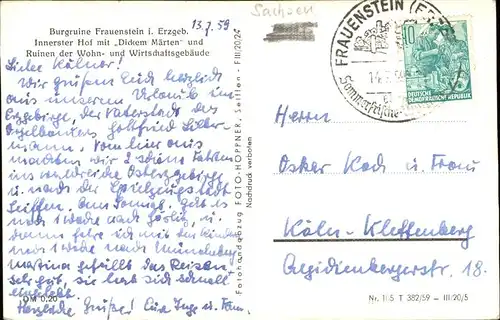 Burgruine Frauenstein i. Erzgeb.
Innerster Hof mit „Dickem Märten" und
Ruinen der Wohn- und Wirtschaftsgebäude
13.7.59
Liebe Kölner!
Wir grüßen Euch herzlich
aus unserem Urlaub im
Erzgebirge, der Vaterstadt des
Orgelbauers Gottfried Silber-
mann. Von hier aus
machten wir 2 schöne Fahrten
ins Osterzgebirge
u. nach der Spielzeugstadt
Seiffen. Am Sonnab. geht es
noch 1 Woche nach Görlitz, u.
dann fahre ich mit den Kindern
noch 1 Woche nach
Martina gefällt das Reisen
sehr gut, sie hat sich schnell
eingelebt.
Herzliche Grüße! Eure Inge u. Fam.
OM 0,20
Fotohandabzug FOTO-HÖPPNER, Seiffen - F III/20/24
Nachdruck verboten
Sachsen
FRAUENSTEIN (ERZGEB)
14.7.59
Sommerfrische
10
DEUTSCHE
DEMOKRATISCHE REPUBLIK
Herrn
Oskar Koch u. Frau
Köln-Klettenberg
Aegidienbergerstr. 18.
Nr. II/5 T 382/59 — III/20/5